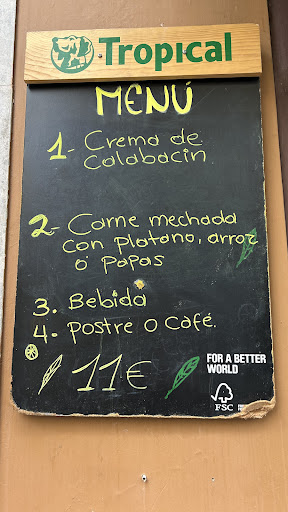 Tropical
MENÚ
1- Crema de
Calabacin
2- Carne mechada
con platano, arroz
ó papas
3. Bebida
4- Postre o café.
11€
FOR A BETTER
WORLD
FSC